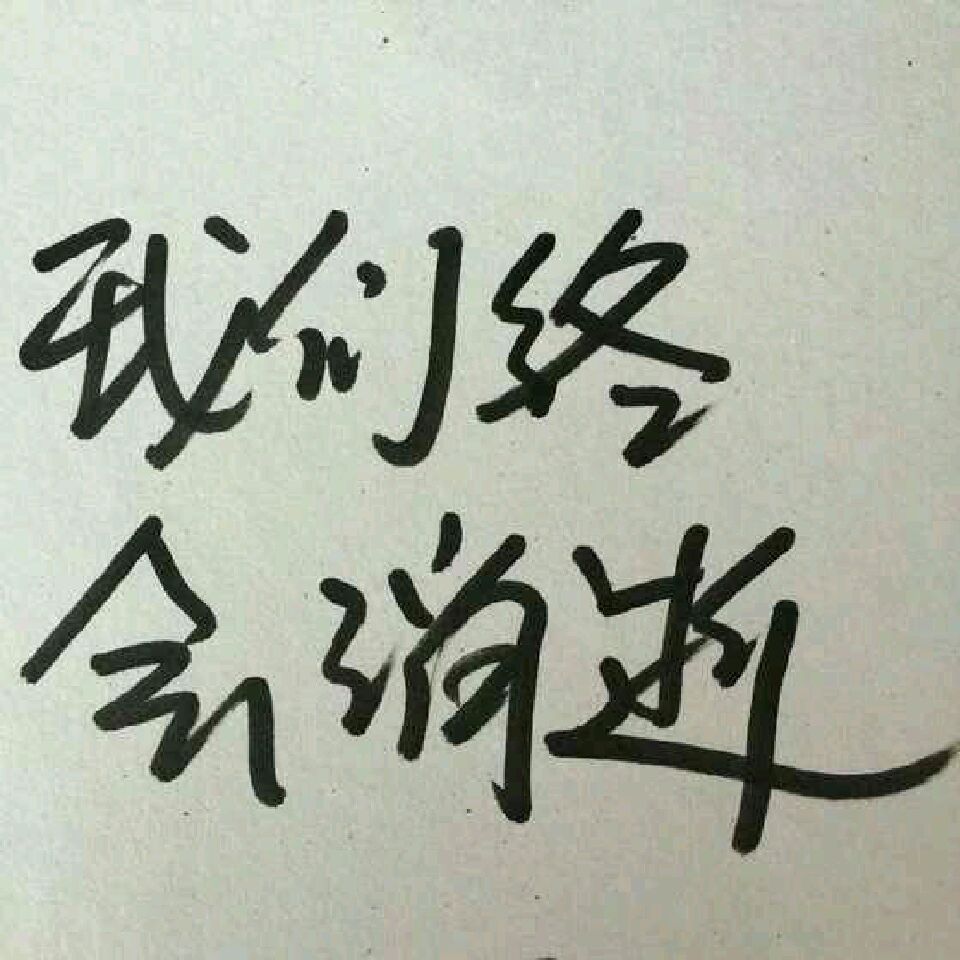 我们终
会消逝